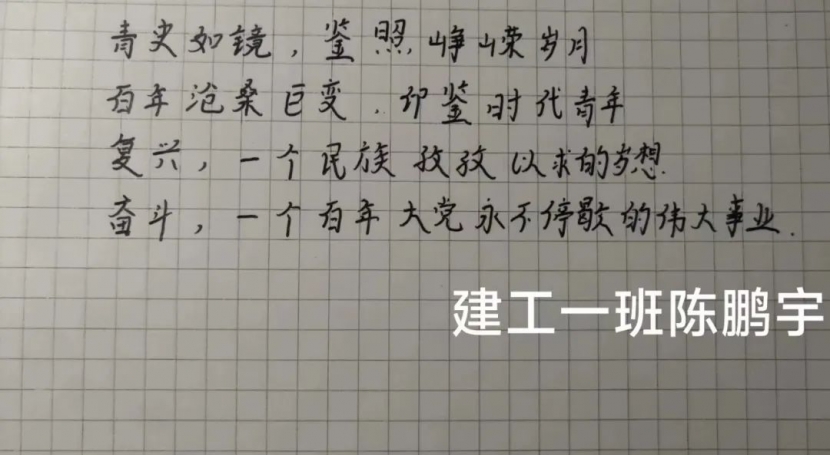 青史如镜，鉴照峥嵘岁月
百年沧桑巨变．印鉴时代青年
复兴，一个民族孜孜以求的梦想.
奋斗，一个百年大党永不停歇的伟大事业.
建工一班陈鹏宇